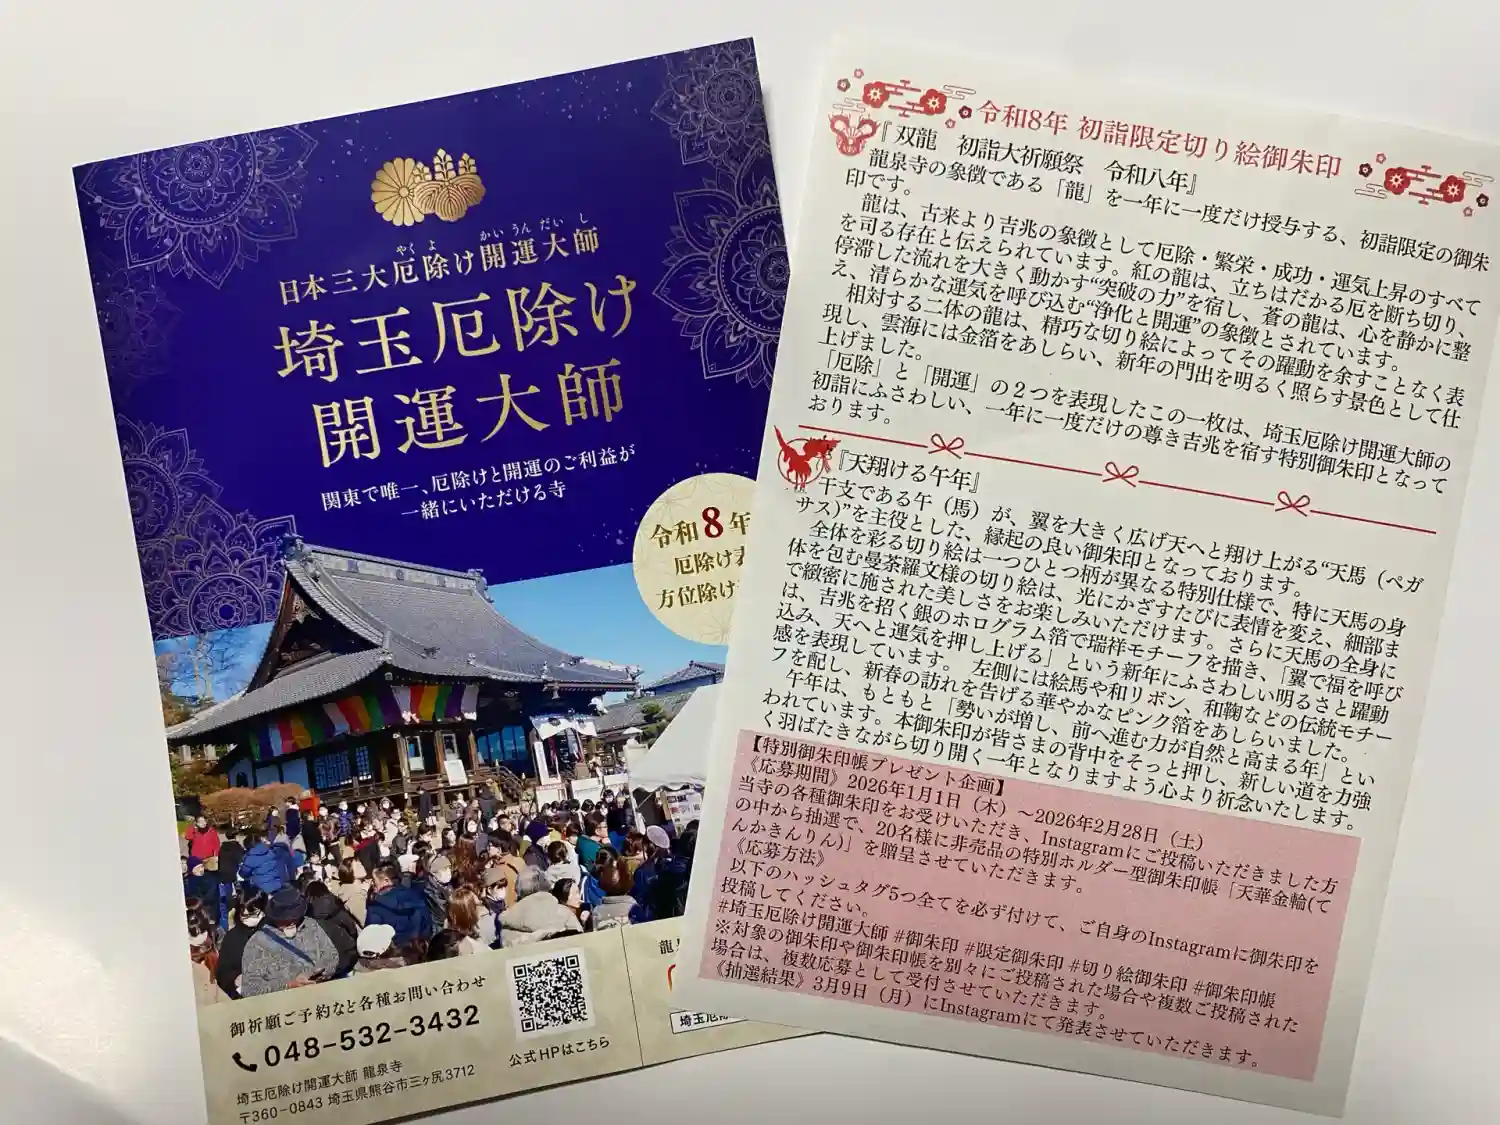 やくよ かいうんだいし
日本三大厄除け開運大師
埼玉厄除け
開運大師
関東で唯一、厄除けと開運のご利益が
一緒にいただける寺
令和8年
厄除け
方位除け
御祈願ご予約など各種お問い合わせ
048-532-3432
埼玉厄除け開運大師 龍泉寺
〒360-0843 埼玉県熊谷市三ヶ尻3712
公式HPはこちら
龍
埼玉厄除
令和8年 初詣限定切り絵御朱印
『双龍 初詣大祈願祭 令和八年』
龍泉寺の象徴である「龍」を一年に一度だけ授与する、初詣限定の御朱
印です。
龍は、古来より吉兆の象徴として厄除・繁栄・成功・運気上昇のすべて
を司る存在と伝えられています。紅の龍は、立ちはだかる厄を断ち切り、
停滞した流れを大きく動かす“突破の力”を宿し、蒼の龍は、心を静かに整
え、清らかな運気を呼び込む“浄化と開運”の象徴とされています。
相対する二体の龍は、精巧な切り絵によってその躍動を余すことなく表
現し、雲海には金箔をあしらい、新年の門出を明るく照らす景色として仕
上げました。
「厄除」と「開運」の２つを表現したこの一枚は、埼玉厄除け開運大師の
初詣にふさわしい、一年に一度だけの尊き吉兆を宿す特別御朱印となって
おります。
『天翔ける午年』
干支である午（馬）が、翼を大きく広げ天へと翔け上がる“天馬（ペガ
サス）”を主役とした、縁起の良い御朱印となっております。
全体を彩る切り絵は一つひとつ柄が異なる特別仕様で、特に天馬の身
体を包む曼荼羅文様の切り絵は、光にかざすたびに表情を変え、細部ま
で緻密に施された美しさをお楽しみいただけます。さらに天馬の全身に
は、吉兆を招く銀のホログラム箔で瑞祥モチーフを描き、「翼で福を呼び
込み、天へと運気を押し上げる」という新年にふさわしい明るさと躍動
感を表現しています。 左側には絵馬や和リボン、和鞠などの伝統モチー
フを配し、新春の訪れを告げる華やかなピンク箔をあしらいました。
午年は、もともと「勢いが増し、前へ進む力が自然と高まる年」とい
われています。本御朱印が皆さまの背中をそっと押し、新しい道を力強
く羽ばたきながら切り開く一年となりますよう心より祈念いたします。
【特別御朱印帳プレゼント企画】
《応募期間》2026年1月1日（木）～2026年2月28日（土）
当寺の各種御朱印をお受けいただき、Instagramにご投稿いただきました方
の中から抽選で、20名様に非売品の特別ホルダー型御朱印帳「天華金輪(て
んかきんりん)」を贈呈させていただきます。
《応募方法》
以下のハッシュタグ5つ全てを必ず付けて、ご自身のInstagramに御朱印を
投稿してください。
#埼玉厄除け開運大師 #御朱印 #限定御朱印 #切り絵御朱印 #御朱印帳
※対象の御朱印や御朱印帳を別々にご投稿された場合や複数ご投稿された
場合は、複数応募として受付させていただきます。
《抽選結果》3月9日（月）にInstagramにて発表させていただきます。